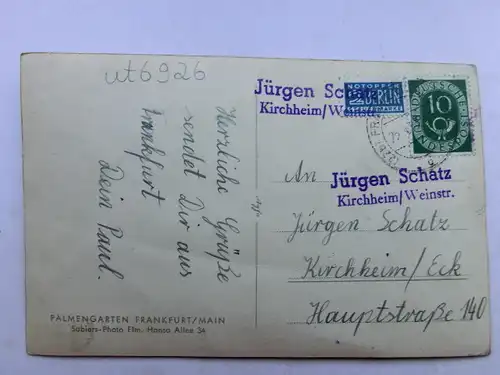 ut6926
Herzliche Grüße
sendet Dir aus
Frankfurt
Dein Paul.
PALMENGARTEN FRANKFURT/MAIN
Sabiers-Photo Ffm. Hansa Allee 34
Jürgen Schatz
Kirchheim/Weinstr.
NOTOPFER
2 BERLIN
STEUERMARKE
DEUTSCHE
10
BUNDESPOST
Jürgen Schatz
Kirchheim/Weinstr.
An
Jürgen Schatz
Kirchheim/Eck
Hauptstraße 140